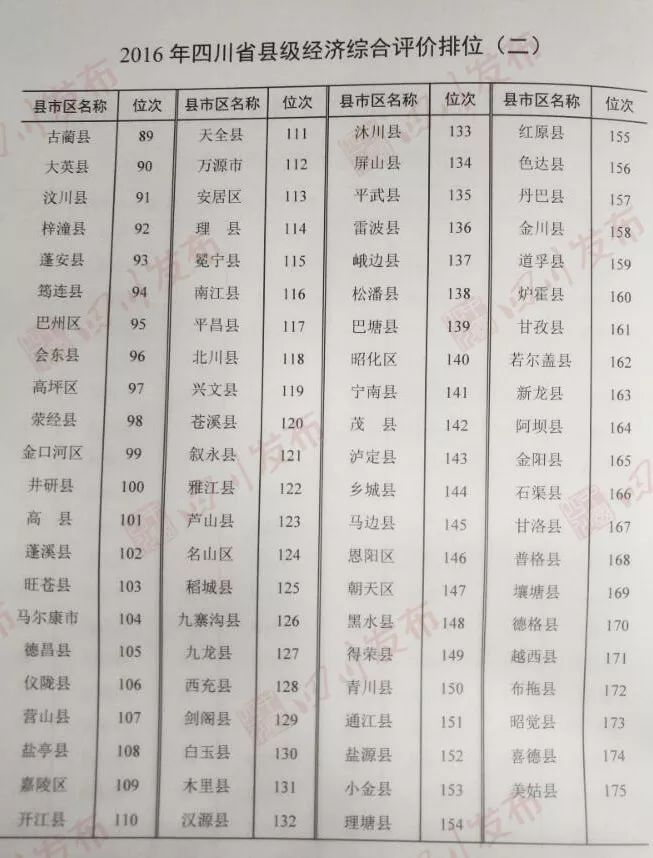 2016 年四川省县级经济综合评价排位（二）
县市区名称 位次 县市区名称 位次 县市区名称 位次 县市区名称 位次
古蔺县 89 天全县 111 沐川县 133 红原县 155
大英县 90 万源市 112 屏山县 134 色达县 156
汶川县 91 安居区 113 平武县 135 丹巴县 157
梓潼县 92 理 县 114 雷波县 136 金川县 158
蓬安县 93 冕宁县 115 峨边县 137 道孚县 159
筠连县 94 南江县 116 松潘县 138 炉霍县 160
巴州区 95 平昌县 117 巴塘县 139 甘孜县 161
会东县 96 北川县 118 昭化区 140 若尔盖县 162
高坪区 97 兴文县 119 宁南县 141 新龙县 163
荥经县 98 苍溪县 120 茂 县 142 阿坝县 164
金口河区 99 叙永县 121 泸定县 143 金阳县 165
井研县 100 雅江县 122 乡城县 144 石渠县 166
高 县 101 芦山县 123 马边县 145 甘洛县 167
蓬溪县 102 名山区 124 恩阳区 146 普格县 168
旺苍县 103 稻城县 125 朝天区 147 壤塘县 169
马尔康市 104 九寨沟县 126 黑水县 148 德格县 170
德昌县 105 九龙县 127 得荣县 149 越西县 171
仪陇县 106 西充县 128 青川县 150 布拖县 172
营山县 107 剑阁县 129 通江县 151 昭觉县 173
盐亭县 108 白玉县 130 盐源县 152 喜德县 174
嘉陵区 109 木里县 131 小金县 153 美姑县 175
开江县 110 汉源县 132 理塘县 154
四川发布